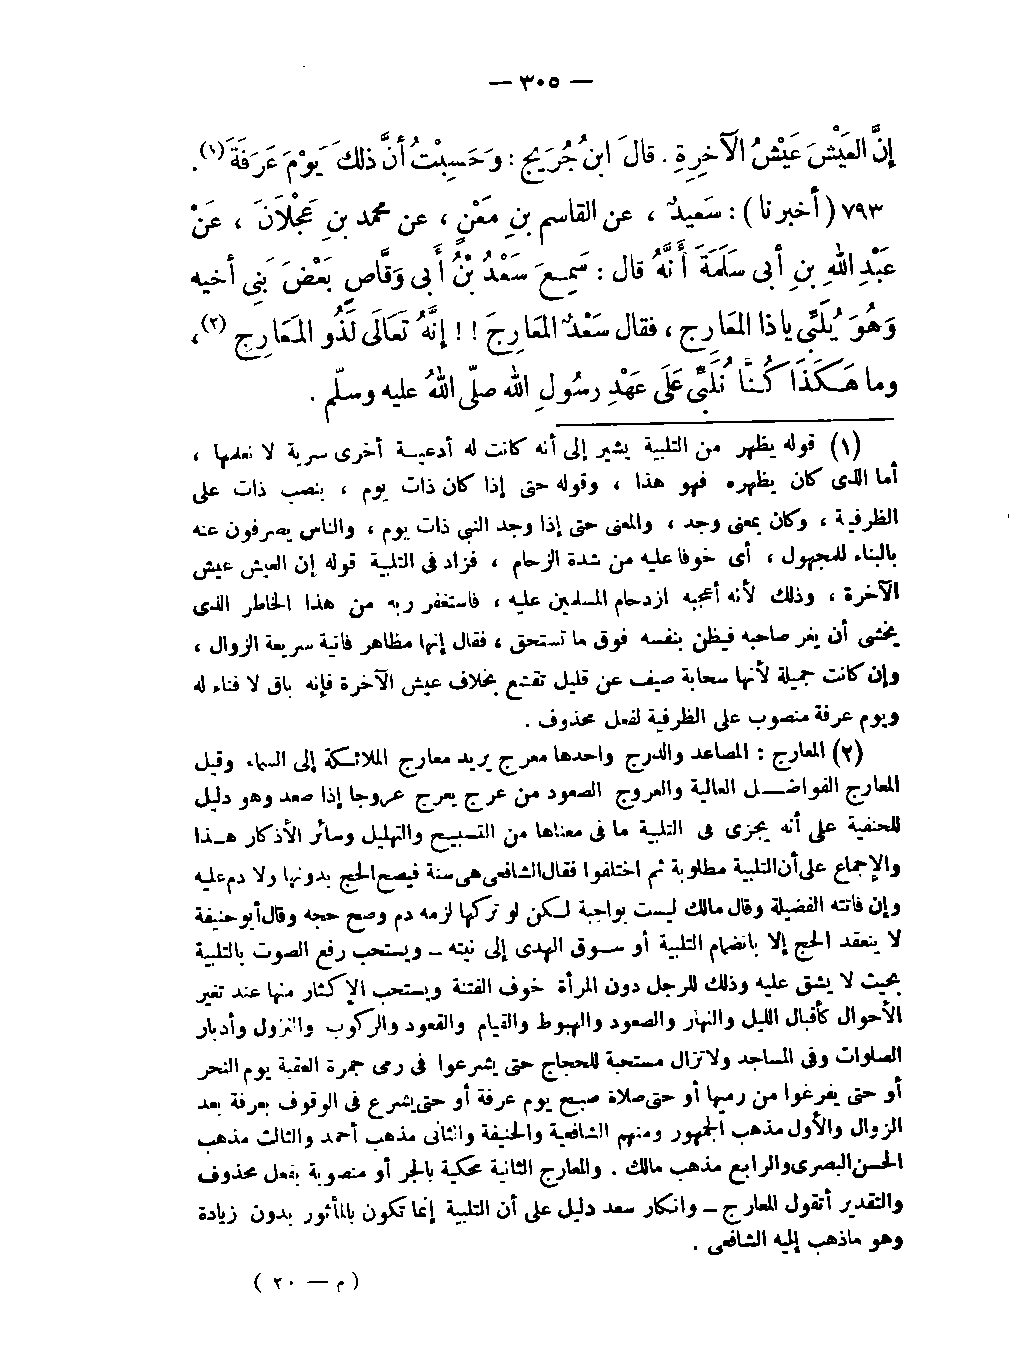 — ٣٠٥ —
إنَّ العَيْشَ عَيْشُ الآخِرةِ . قالَ ابنُ جُرَيجٍ : وَحَسِبْتُ أنَّ ذلكَ يَوْمَ عَرَفَةَ (١) .
٧٩٣ ( أخبرنا ) : سَعِيدٌ ، عن القاسم بنِ مَعْنٍ ، عن محمد بنِ عَجْلَانَ ، عَنْ
عَبْدِ اللهِ بنِ أبى سَلَمَةَ أَنَّهُ قال : سَمِعَ سَعْدُ بْنُ أَبى وَقَّاصٍ بَعْضَ بَنِى أخيه
وَهُوَ يُلَبِّى ياذا المَعَارِج ، فقال سَعْدٌ المَعَارِجَ !! إنَّهُ تَعَالَى لَذُو المَعَارِج (٢) ،
وما هَكَذَا كُنَّا نُلَبِّى عَلَى عَهْدِ رسُولِ الله صلّى اللهُ عليه وسلّم .
(١) قوله يظهر من التلبية يشير إلى أنه كانت له أدعية أخرى سرية لا نعلمها ،
أما الذى كان يظهره فهو هذا ، وقوله حتى إذا كان ذات يوم ، بنصب ذات على
الظرفية ، وكان بمعنى وجد ، والمعنى حتى إذا وجد النبى ذات يوم ، والناس يصرفون عنه
بالبناء للمجهول ، أى خوفا عليه من شدة الزحام ، فزاد فى التلبية قوله إن العيش عيش
الآخرة ، وذلك لأنه أعجبه ازدحام المسلمين عليه ، فاستغفر ربه من هذا الخاطر الذى
يخشى أن يغر صاحبه فيظن بنفسه فوق ما تستحق ، فقال إنها مظاهر فانية سريعة الزوال ،
وإن كانت جميلة لأنها سحابة صيف عن قليل تقشع بخلاف عيش الآخرة فإنه باق لا فناء له
ويوم عرفة منصوب على الظرفية لفعل محذوف .
(٢) المعارج : المصاعد والدرج واحدها معرج يريد معارج الملائكة إلى السماء وقيل
المعارج الفواضل العالية والعروج الصعود من عرج يعرج عروجا إذا صعد وهو دليل
للحنفية على أنه يجزى فى التلبية ما فى معناها من التسبيح والتهليل وسائر الأذكار هذا
والإجماع على أن التلبية مطلوبة ثم اختلفوا فقال الشافعى هى سنة فيصح الحج بدونها ولا دم عليه
وإن فاتته الفضيلة وقال مالك ليست بواجبة لكن لو تركها لزمه دم وصح حجه وقال أبو حنيفة
لا ينعقد الحج إلا بانضمام التلبية أو سوق الهدى إلى نيته – ويستحب رفع الصوت بالتلبية
بحيث لا يشق عليه وذلك للرجل دون المرأة خوف الفتنة ويستحب الإكثار منها عند تغير
الأحوال كأقبال الليل والنهار والصعود والهبوط والقيام والقعود والركوب والنزول وأدبار
الصلوات وفى المساجد ولاتزال مستحبة للحجاج حتى يشرعوا فى رمى جمرة العقبة يوم النحر
أو حتى يفرغوا من رميها أو حتى صلاة صبح يوم عرفة أو حتى يشرع فى الوقوف بعرفة بعد
الزوال والأول مذهب الجمهور ومنهم الشافعية والحنيفة والثانى مذهب أحمد والثالث مذهب
الحسن البصرى والرابع مذهب مالك . والمعارج الثانية محكية بالجر أو منصوبة بفعل محذوف
والتقدير أتقول المعارج – وانكار سعد دليل على أن التلبية إنما تكون بالمأثور بدون زيادة
وهو ماذهب إليه الشافعى .
( م — ٢٠ )